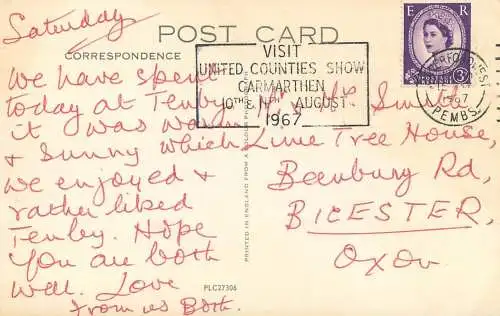 Saturday
POST CARD
CORRESPONDENCE
We have spent
today at Tenby
it was warm
& sunny which
we enjoyed &
rather liked
Tenby. Hope
you are both
well. Love
from us Both.
VISIT
UNITED COUNTIES SHOW
CARMARTHEN
10TH & 11TH AUGUST
1967
E R
3D
PEMBS
Smith
Lime Tree House,
Beenbury Rd,
BICESTER,
Oxon
PRINTED IN ENGLAND FROM A
PLC27306